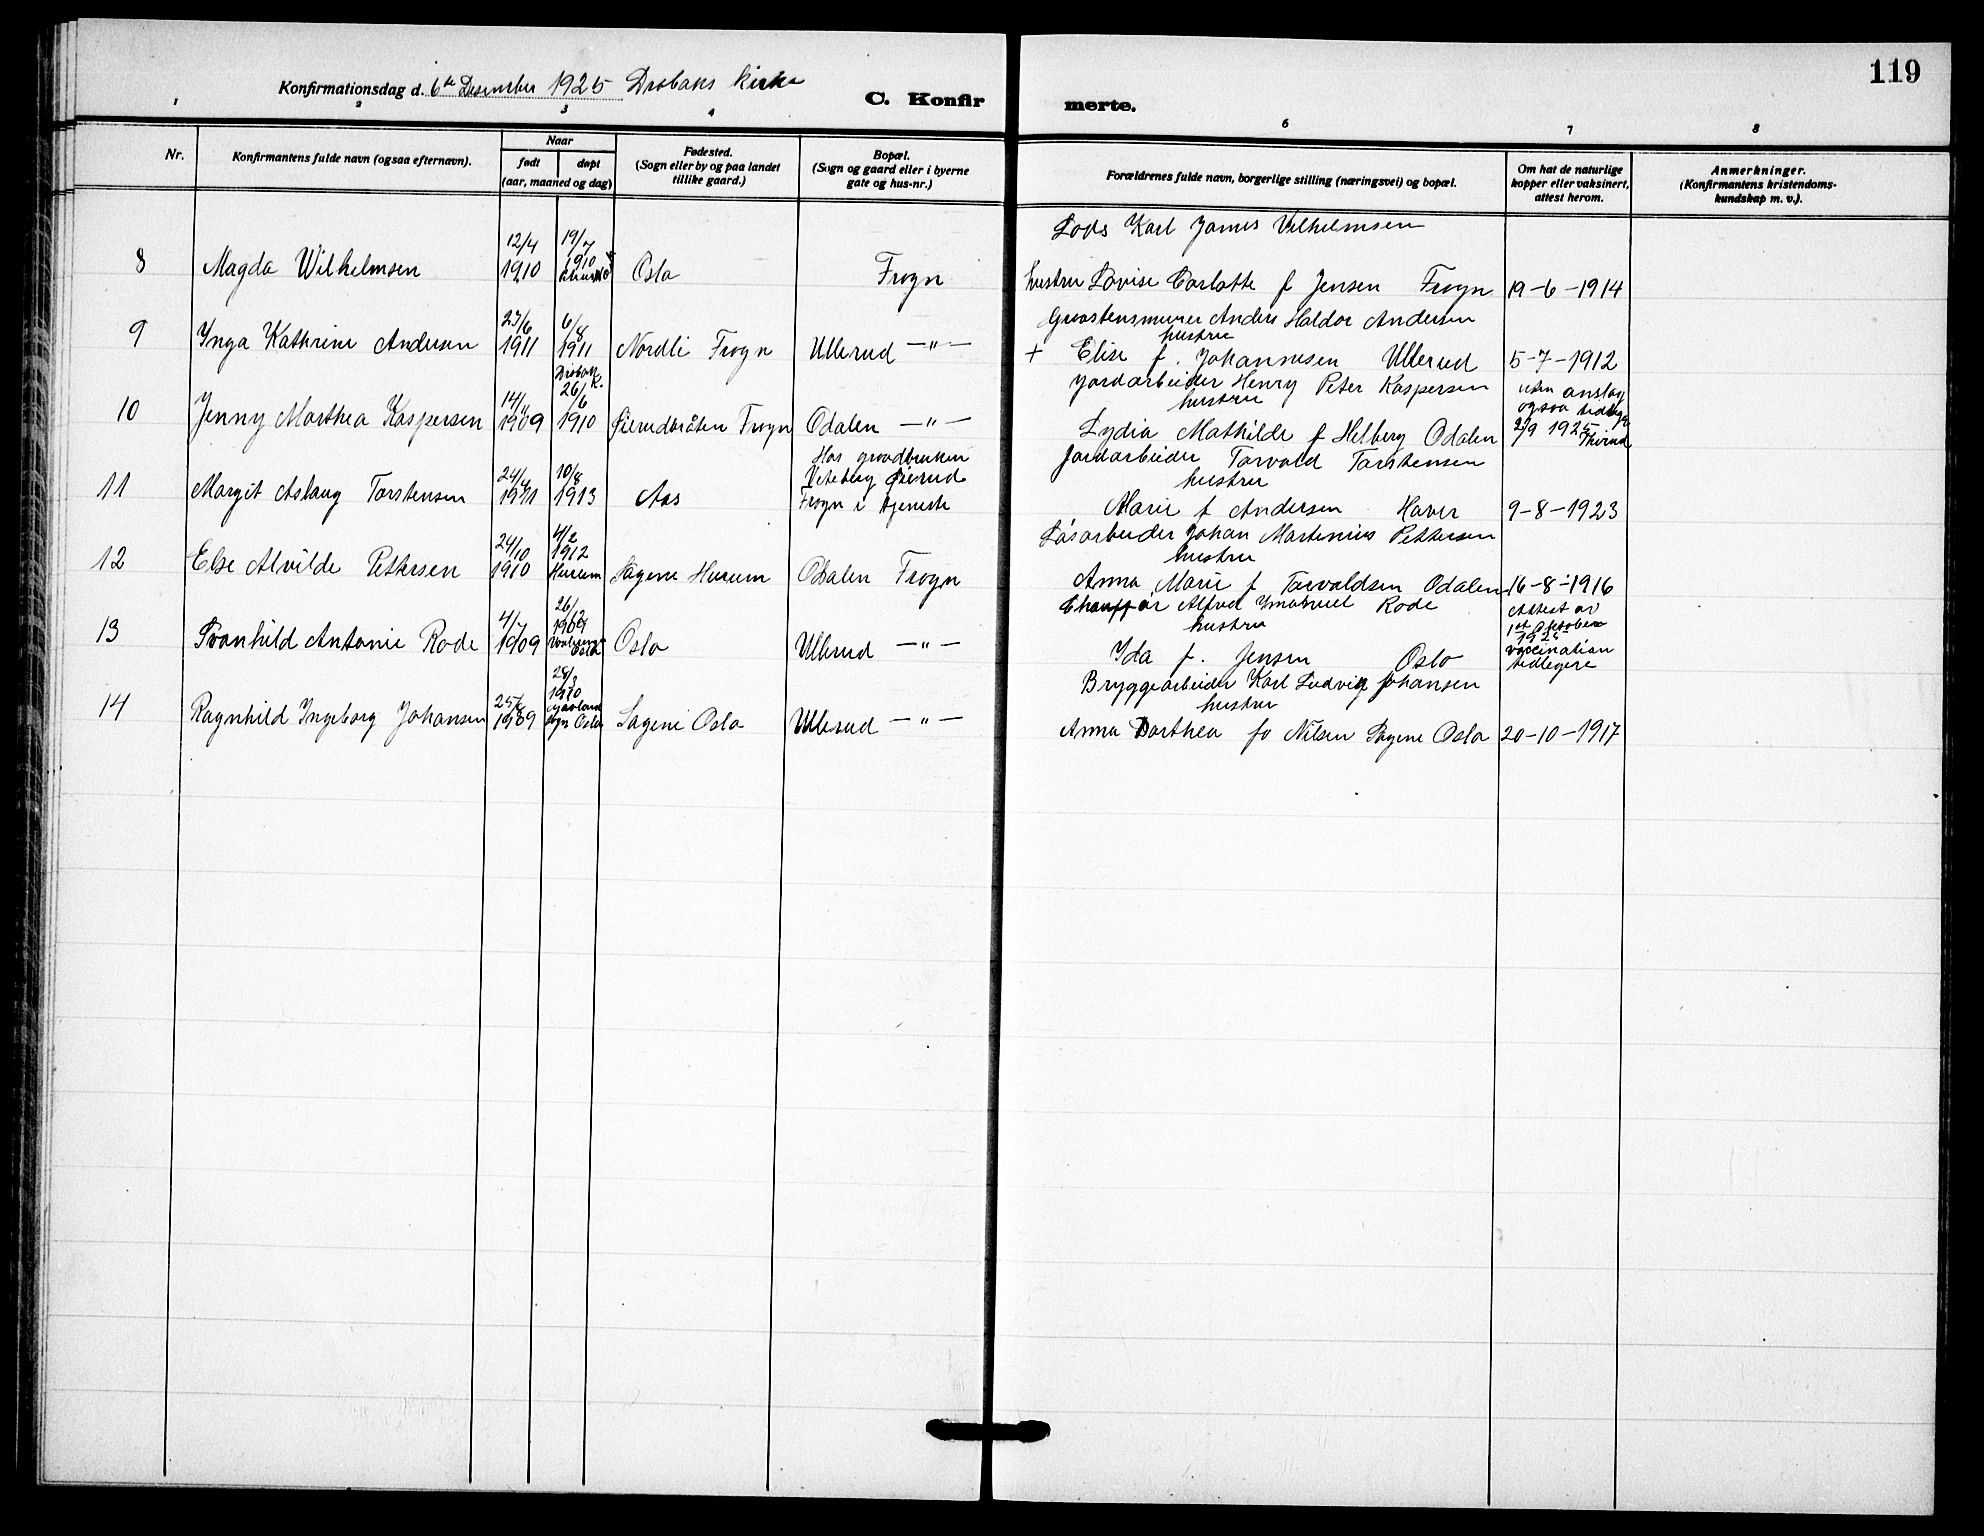 119
Konfirmationsdag d. 6te Desember 1925 Drøbaks kirke
C. Konfirmerte.
1 2 3 4 6 7 8
Nr.
Konfirmantens fulde navn (ogsaa efternavn).
Naar
født døpt
(aar, maaned og dag)
Fødested.
(Sogn eller by og paa landet
tillike gaard.)
Bopæl.
(Sogn og gaard eller i byerne
gate og hus-nr.)
Forældrenes fulde navn, borgerlige stilling (næringsvei) og bopæl.
Om hat de naturlige
kopper eller vaksinert,
attest herom.
Anmerkninger.
(Konfirmantens kristendoms-
kundskap m. v.).
Lods Karl James Vilhelmsen
12/4 19/7
8 Magda Wilhelmsen 1910 1910 Oslo Frogn hustru Lovise Carlotte f Jensen Frogn 19-6-1914
23/6 6/8 Graastensmurer Anders Haldor Andersen
hustru
9 Ynga Kathrine Andersen 1911 1911 Nordli Frogn Ullerud —"— + Elise f. Johannesen Ullerud 5-7-1912
Drøbak K.
14/4 26/6 Jordarbeider Henry Peter Kaspersen uten anslag
hustru ogsaa tidligere
10 Jenny Marthea Kaspersen 1909 1910 Øierudbråten Frogn Odalen —"— Lydia Mathilde f Helberg Odalen 2/9 1925
Hos graadbruken
24/4 10/8 Viteberg Øierud Jordarbeider Torvald Torstensen
hustru
11 Margit Aslaug Torstensen 1911 1913 Aas Frogn i tjeneste Marie f Andersen Haver 9-8-1923
24/10 4/2 Løsarbeider Johan Martinius Pettersen
1912 hustru
12 Else Alvilde Pettersen 1910 Hurum Sagene Hurum Odalen Frogn Anna Marie f Torvaldsen Odalen 16-8-1916
4/7 26/12 Chauffør Alfred Ymanuel Rode Attest av
1909 hustru 1st Oktober
1925
13 Svanhild Antonie Rode 1909 Oslo Oslo Ullerud —"— Ida f. Jensen Oslo vaccination
tidligere
28/3 Bryggearbeider Karl Ludvig Johansen
25/8 1910 hustru
14 Ragnhild Ingeborg Johansen 1909 Oslo Sagene Oslo Ullerud —"— Anna Dorthea fo Nilsen Sagene Oslo 20-10-1917